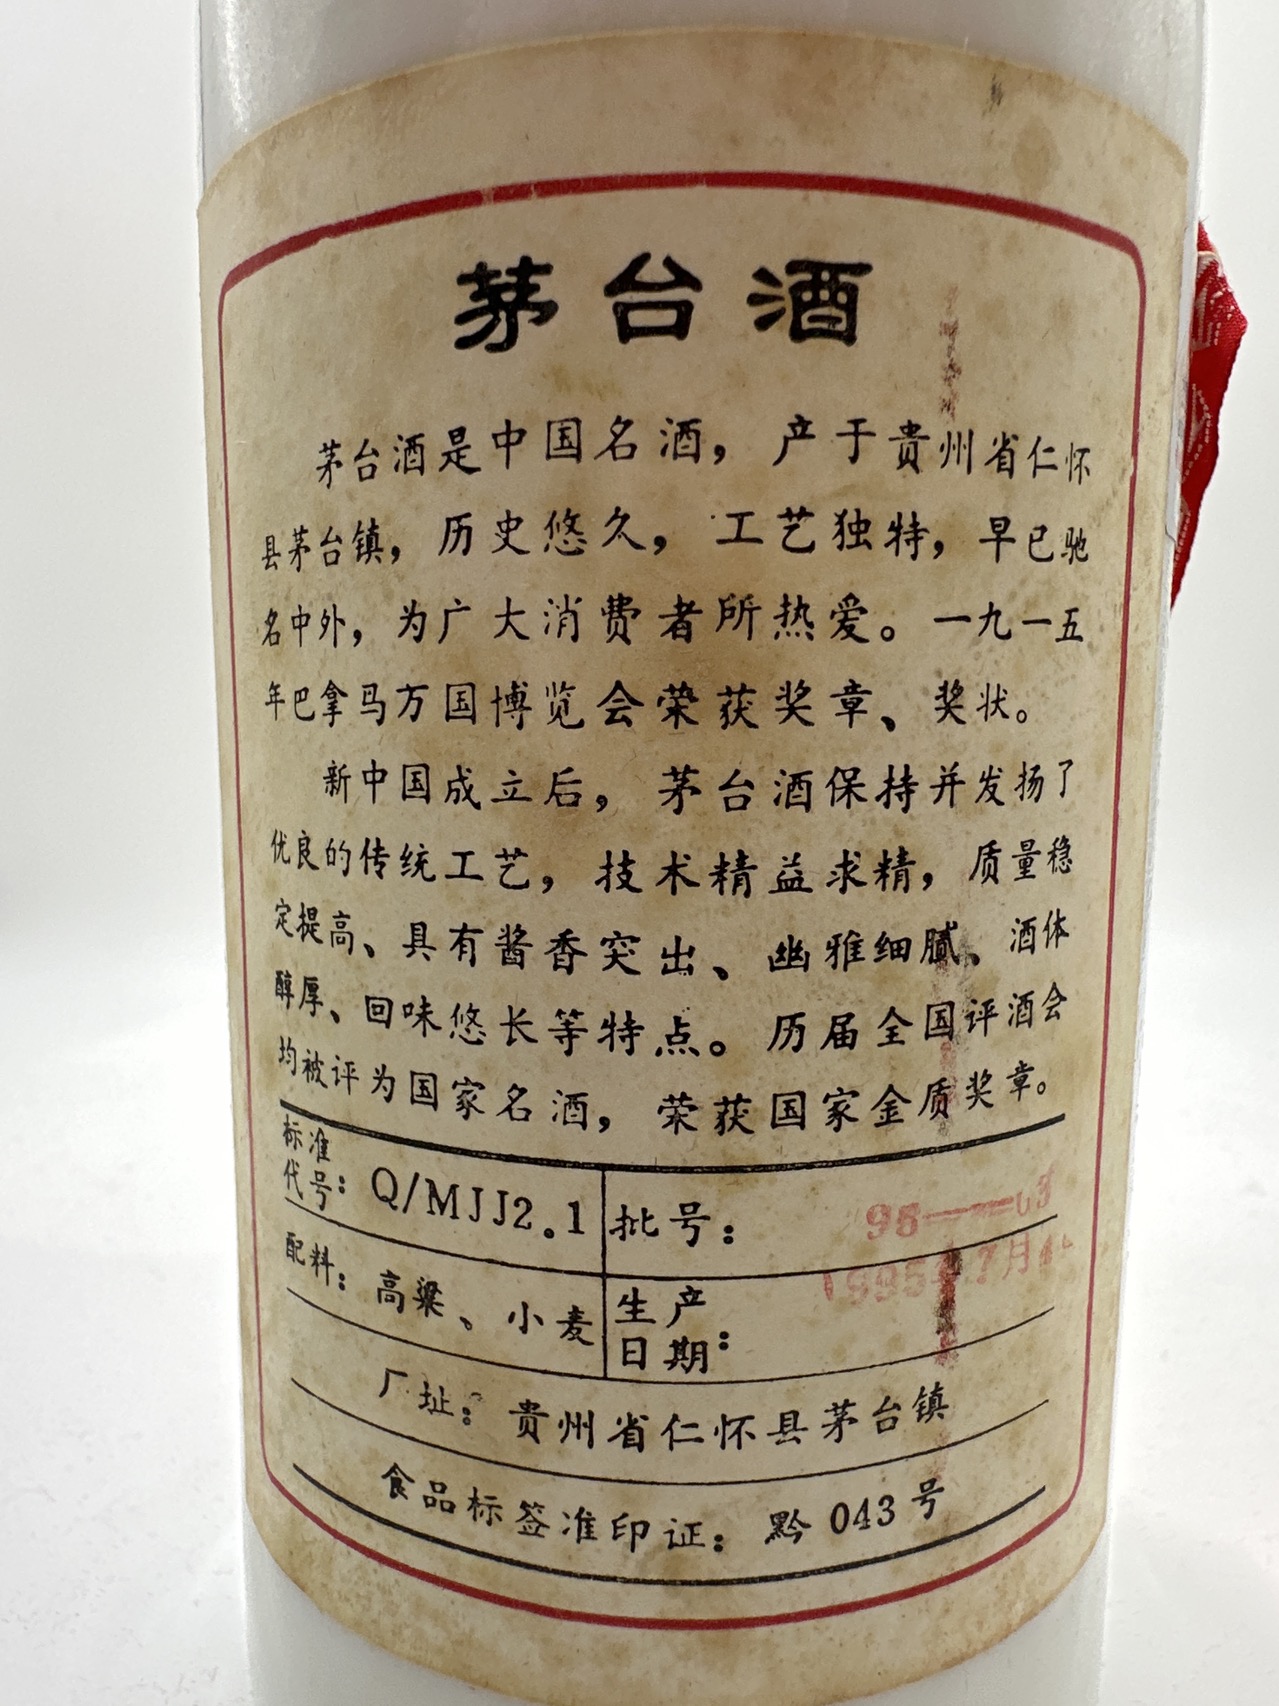 茅台酒
茅台酒是中国名酒，产于贵州省仁怀
县茅台镇，历史悠久，工艺独特，早已驰
名中外，为广大消费者所热爱。一九一五
年巴拿马万国博览会荣获奖章、奖状。
新中国成立后，茅台酒保持并发扬了
优良的传统工艺，技术精益求精，质量稳
定提高、具有酱香突出、幽雅细腻、酒体
醇厚、回味悠长等特点。历届全国评酒会
均被评为国家名酒，荣获国家金质奖章。
标准代号：Q/MJJ2.1 批号：95——03
配料：高粱、小麦 生产日期：1995年7月4
厂址：贵州省仁怀县茅台镇
食品标签准印证：黔043号